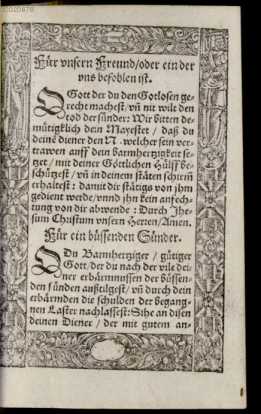 Für vnsern Freund/oder ein der
vns befohlen ist.
O Gott der du den Gotlosen ge-
recht machest/vñ nit wilt den
tod der sünder: Wir bitten de-
mütigklich dein Mayestet / daß du
deine diener den N. welcher sein ver-
trawen auff dein barmhertzigkeit se-
tzet / mit deiner Göttlichen Hülff be-
schützest / vñ in deinem stäten schirm
erhaltest : damit dir stätigs von jhm
gedient werde/vnnd jhn kein anfech-
tung von dir abwende : Durch Jhe-
sum Christum vnsern Herren/Amen.
Für ein büssenden Sünder.
O Du Barmhertziger / gütiger
Gott/der du nach der vile dei-
ner erbärmnussen der büssen-
den sünden außtilgest/vñ durch dein
erbärmden die schulden der begang-
nen Laster nachlassest:Sihe an disen
deinen Diener / der mit gutem an-